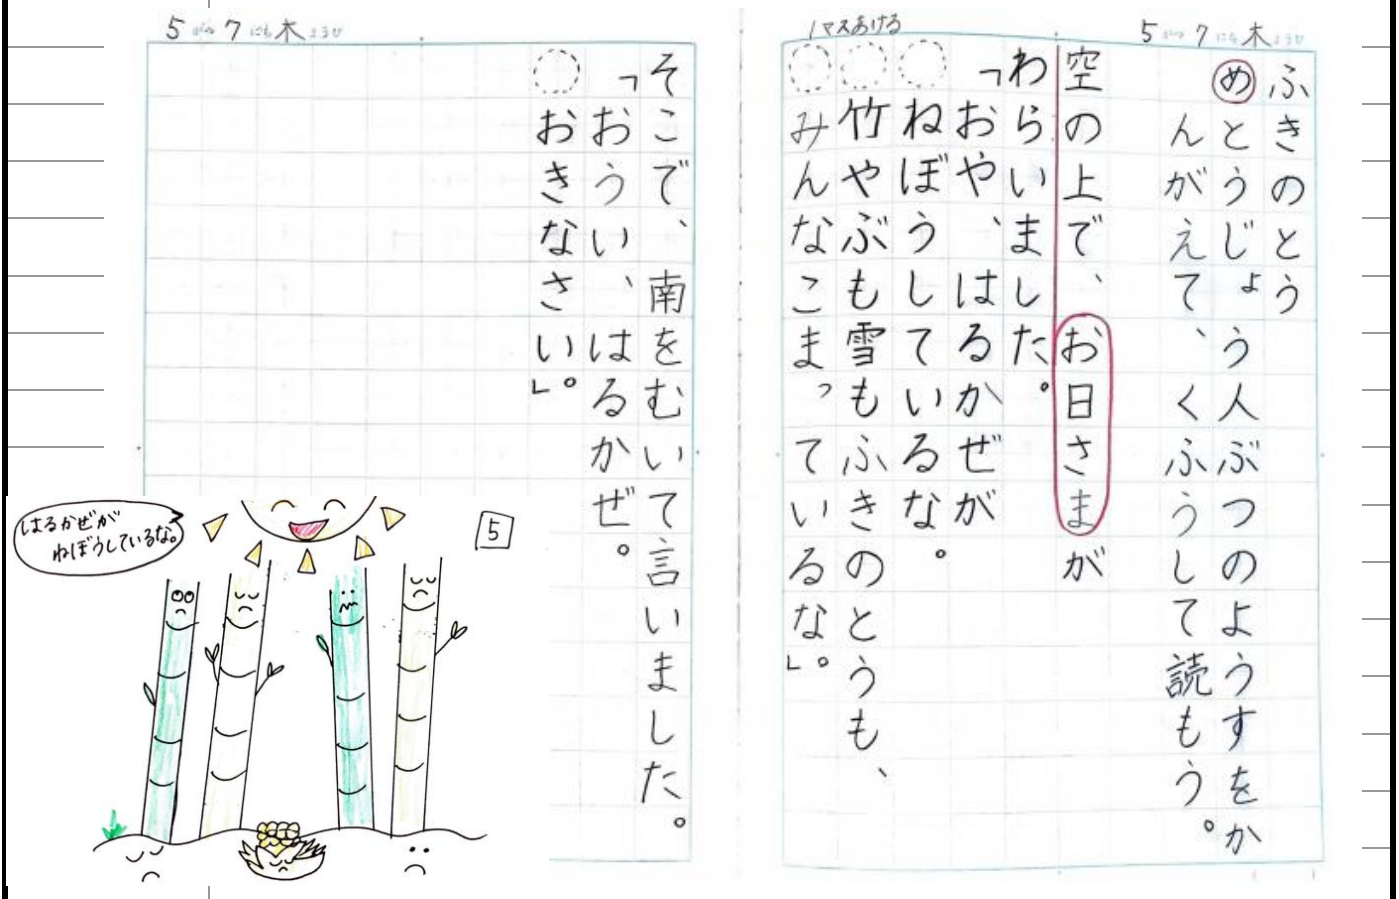 5がつ7にち木ようび
ふきのとう
めとうじょう人ぶつのようすをか
んがえて、くふうして読もう。
空の上で、お日さまが
わらいました。
「おや、はるかぜが
ねぼうしているな。
竹やぶも雪もふきのとうも、
みんなこまっているな。」
1マスあける
5がつ7にち木ようび
そこで、南をむいて言いました。
「おうい、はるかぜ。
おきなさい。」
5
はるかぜが
ねぼうしているな。